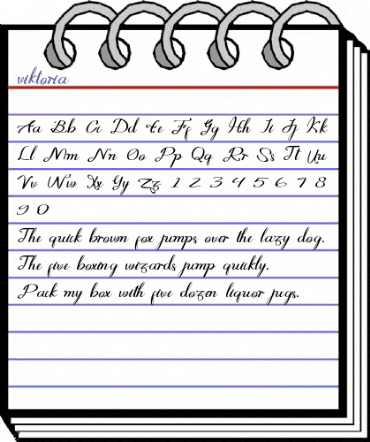 viktoria
Aa Bb Cc Dd Ee Ff Gg Hh Ii Jj Kk
Ll Mm Nn Oo Pp Qq Rr Ss Tt Uu
Vv Ww Xx Yy Zz 1 2 3 4 5 6 7 8
9 0
The quick brown fox jumps over the lazy dog.
The five boxing wizards jump quickly.
Pack my box with five dozen liquor jugs.